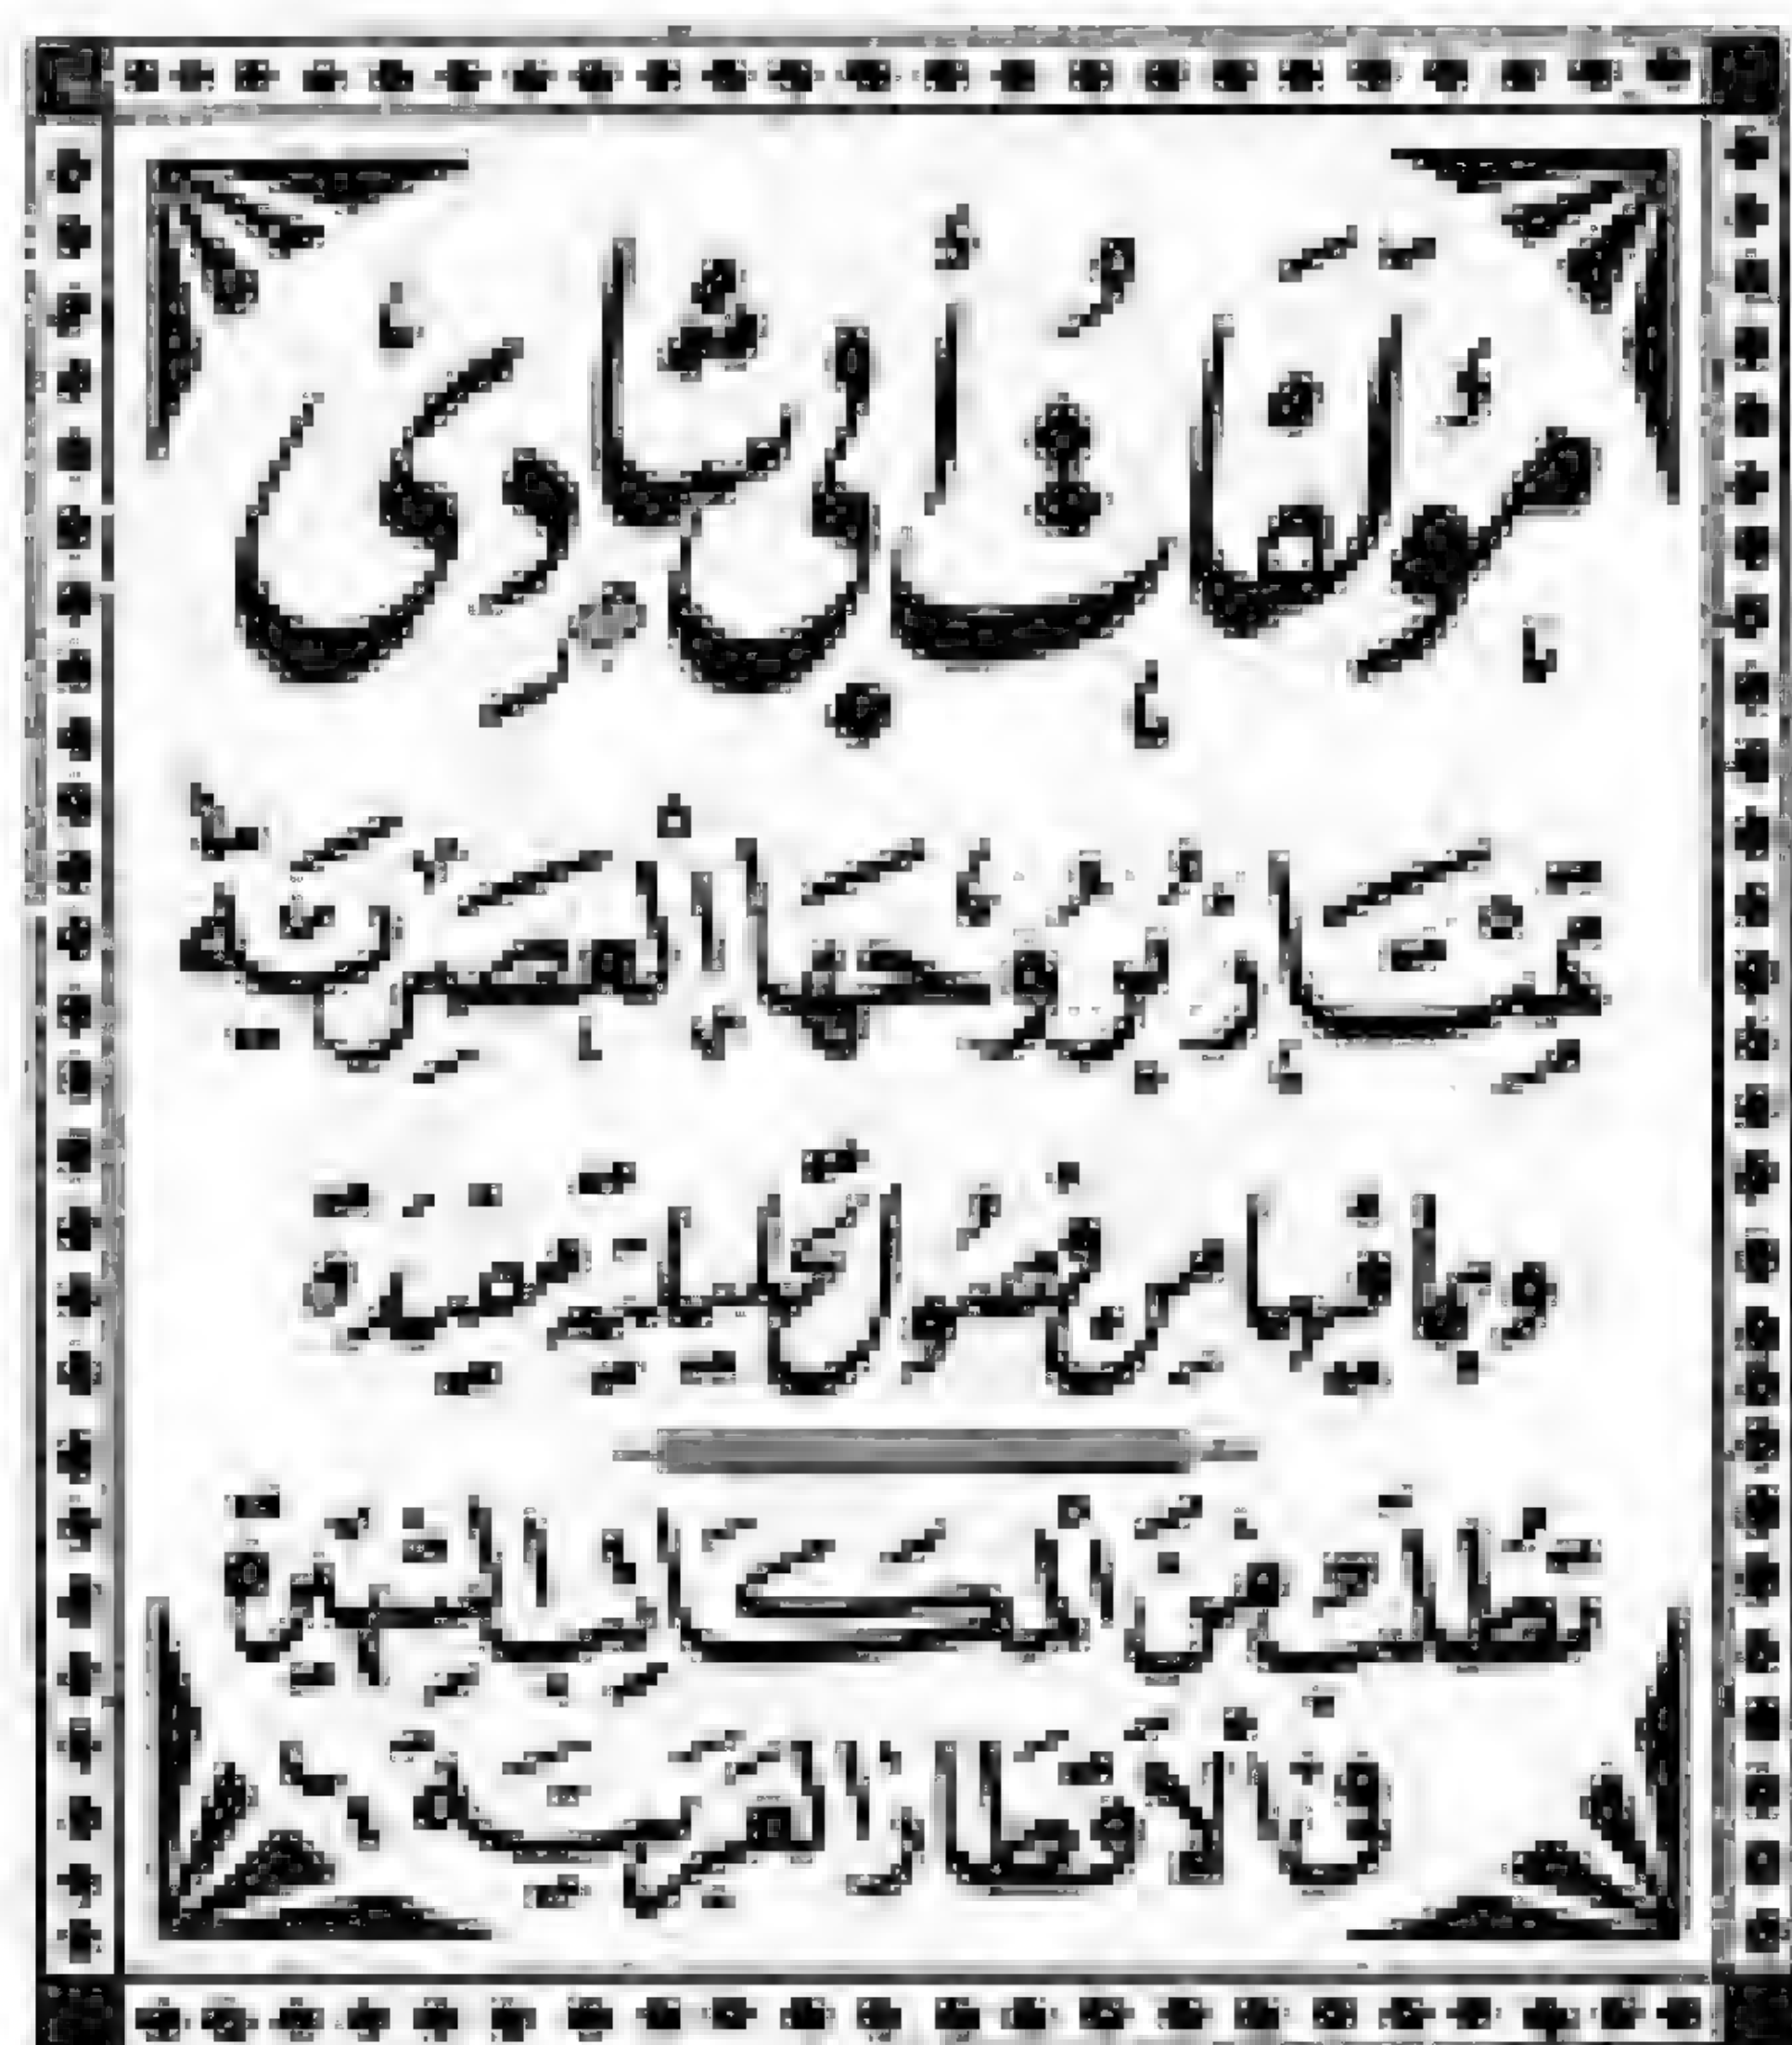 مؤلفات أبي شادي
تمتاز بروحها العصرية
وبما فيها من فصول تحليلية مصدرة
تطلب من المكاتب الشهيرة
في الأقطار العربية